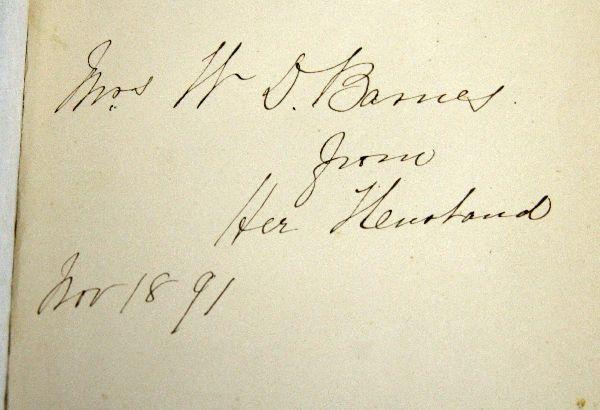 Mrs. W D. Barnes.
from
Her Husband
Nov 1891